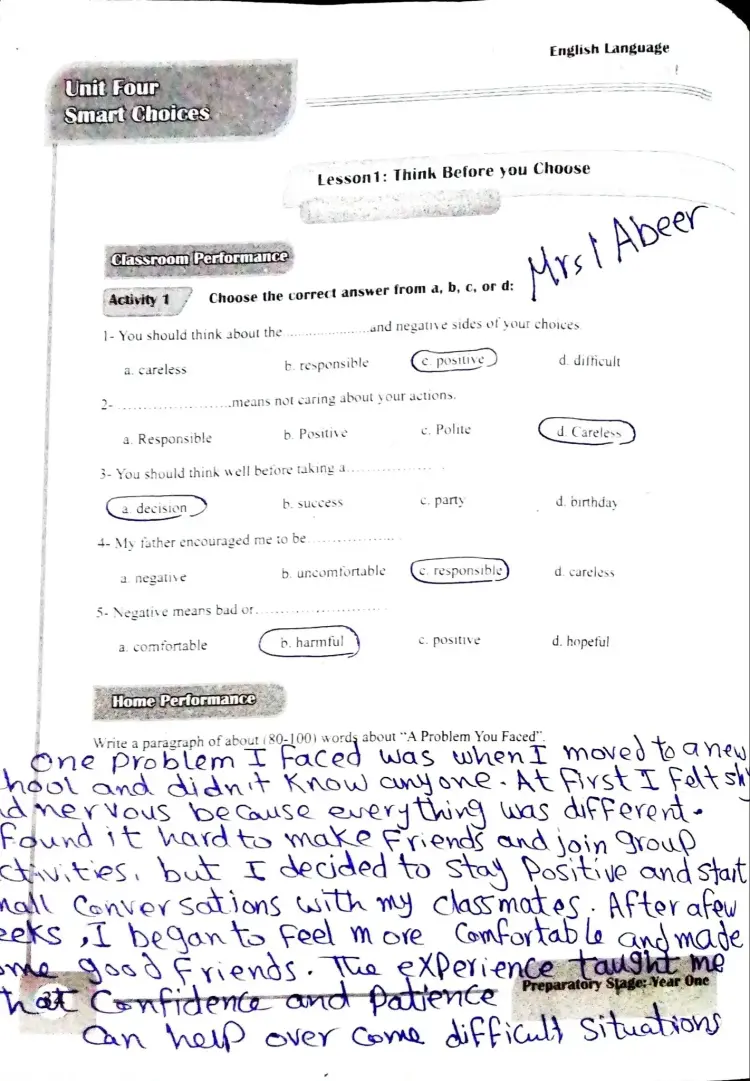 English Language
Unit Four
Smart Choices
Lesson1: Think Before you Choose
Classroom Performance
Mrs / Abeer
Activity 1 Choose the correct answer from a, b, c, or d:
1- You should think about the ....................and negative sides of your choices
a. careless b. responsible c. positive d. difficult
2- ...........................means not caring about your actions.
a. Responsible b. Positive c. Polite d. Careless
3- You should think well before taking a........................ .
a. decision b. success c. party d. birthday
4- My father encouraged me to be.......................
a. negative b. uncomfortable c. responsible d. careless
5- Negative means bad or...............................
a. comfortable b. harmful c. positive d. hopeful
Home Performance
Write a paragraph of about (80-100) words about "A Problem You Faced".
One problem I faced was when I moved to a new
hool and didn't know anyone. At first I felt shy
d nervous because everything was different.
Found it hard to make friends and join group
ctivities, but I decided to stay positive and start
mall Conversations with my classmates. After a few
eeks, I began to feel more Comfortable and made
ome good friends. The experience taught me
hat Confidence and Patience
Preparatory Stage: Year One
34
Can help over come difficult situations